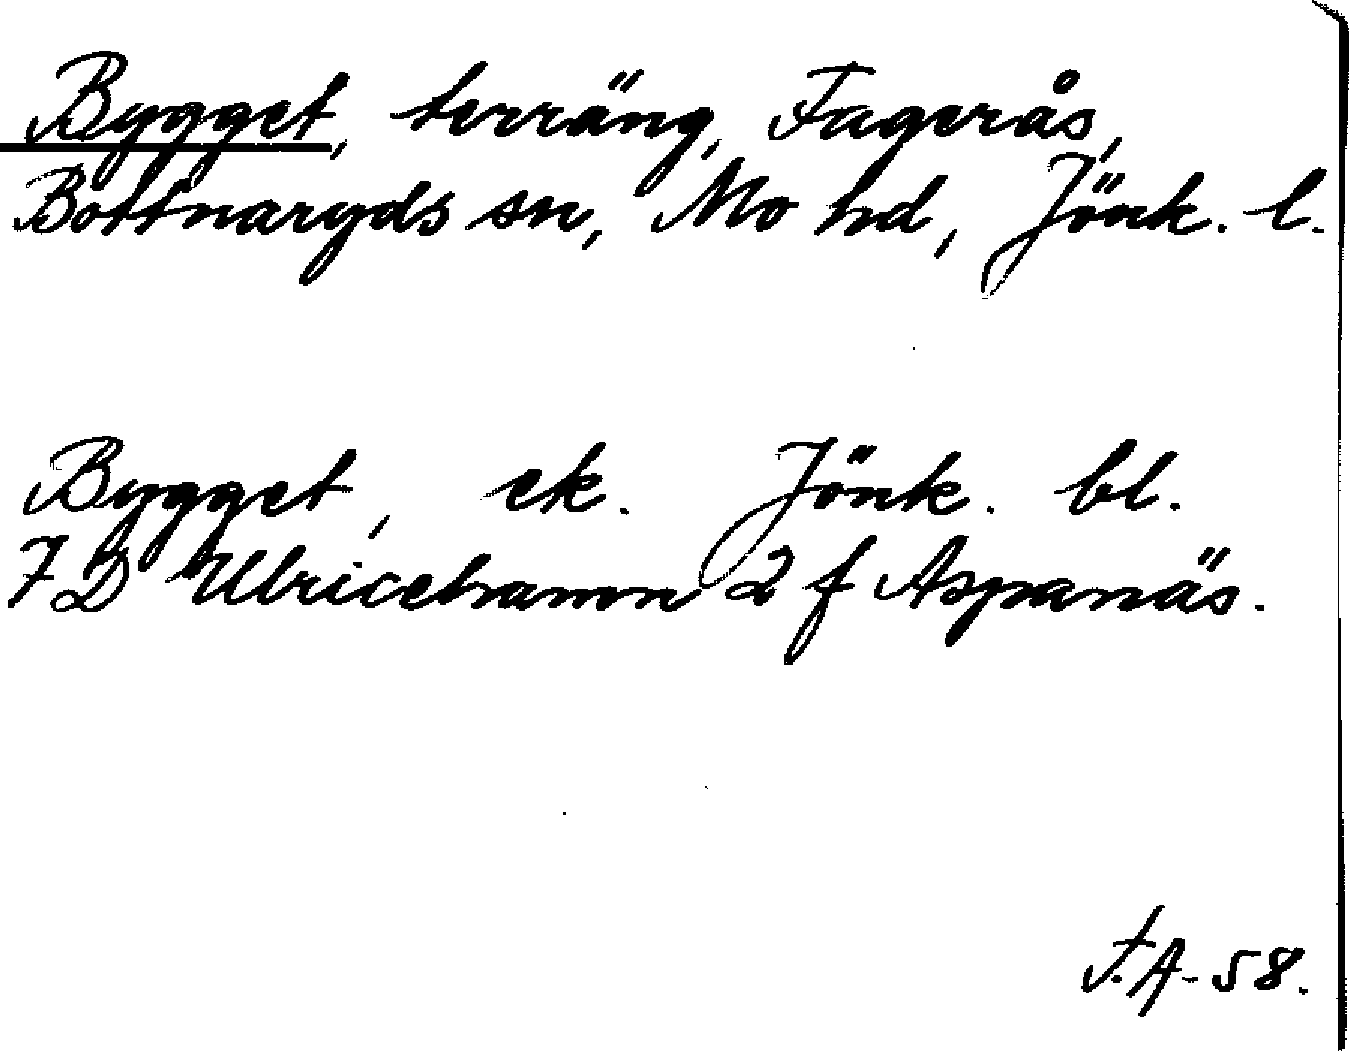 Bygget, terräng, Fagerås,
Bottnaryds sn, Mo hd, Jönk. l.
Bygget, ek. Jönk. bl.
7 D Ulricehamn 2 f Aspanäs.
F.A-58.